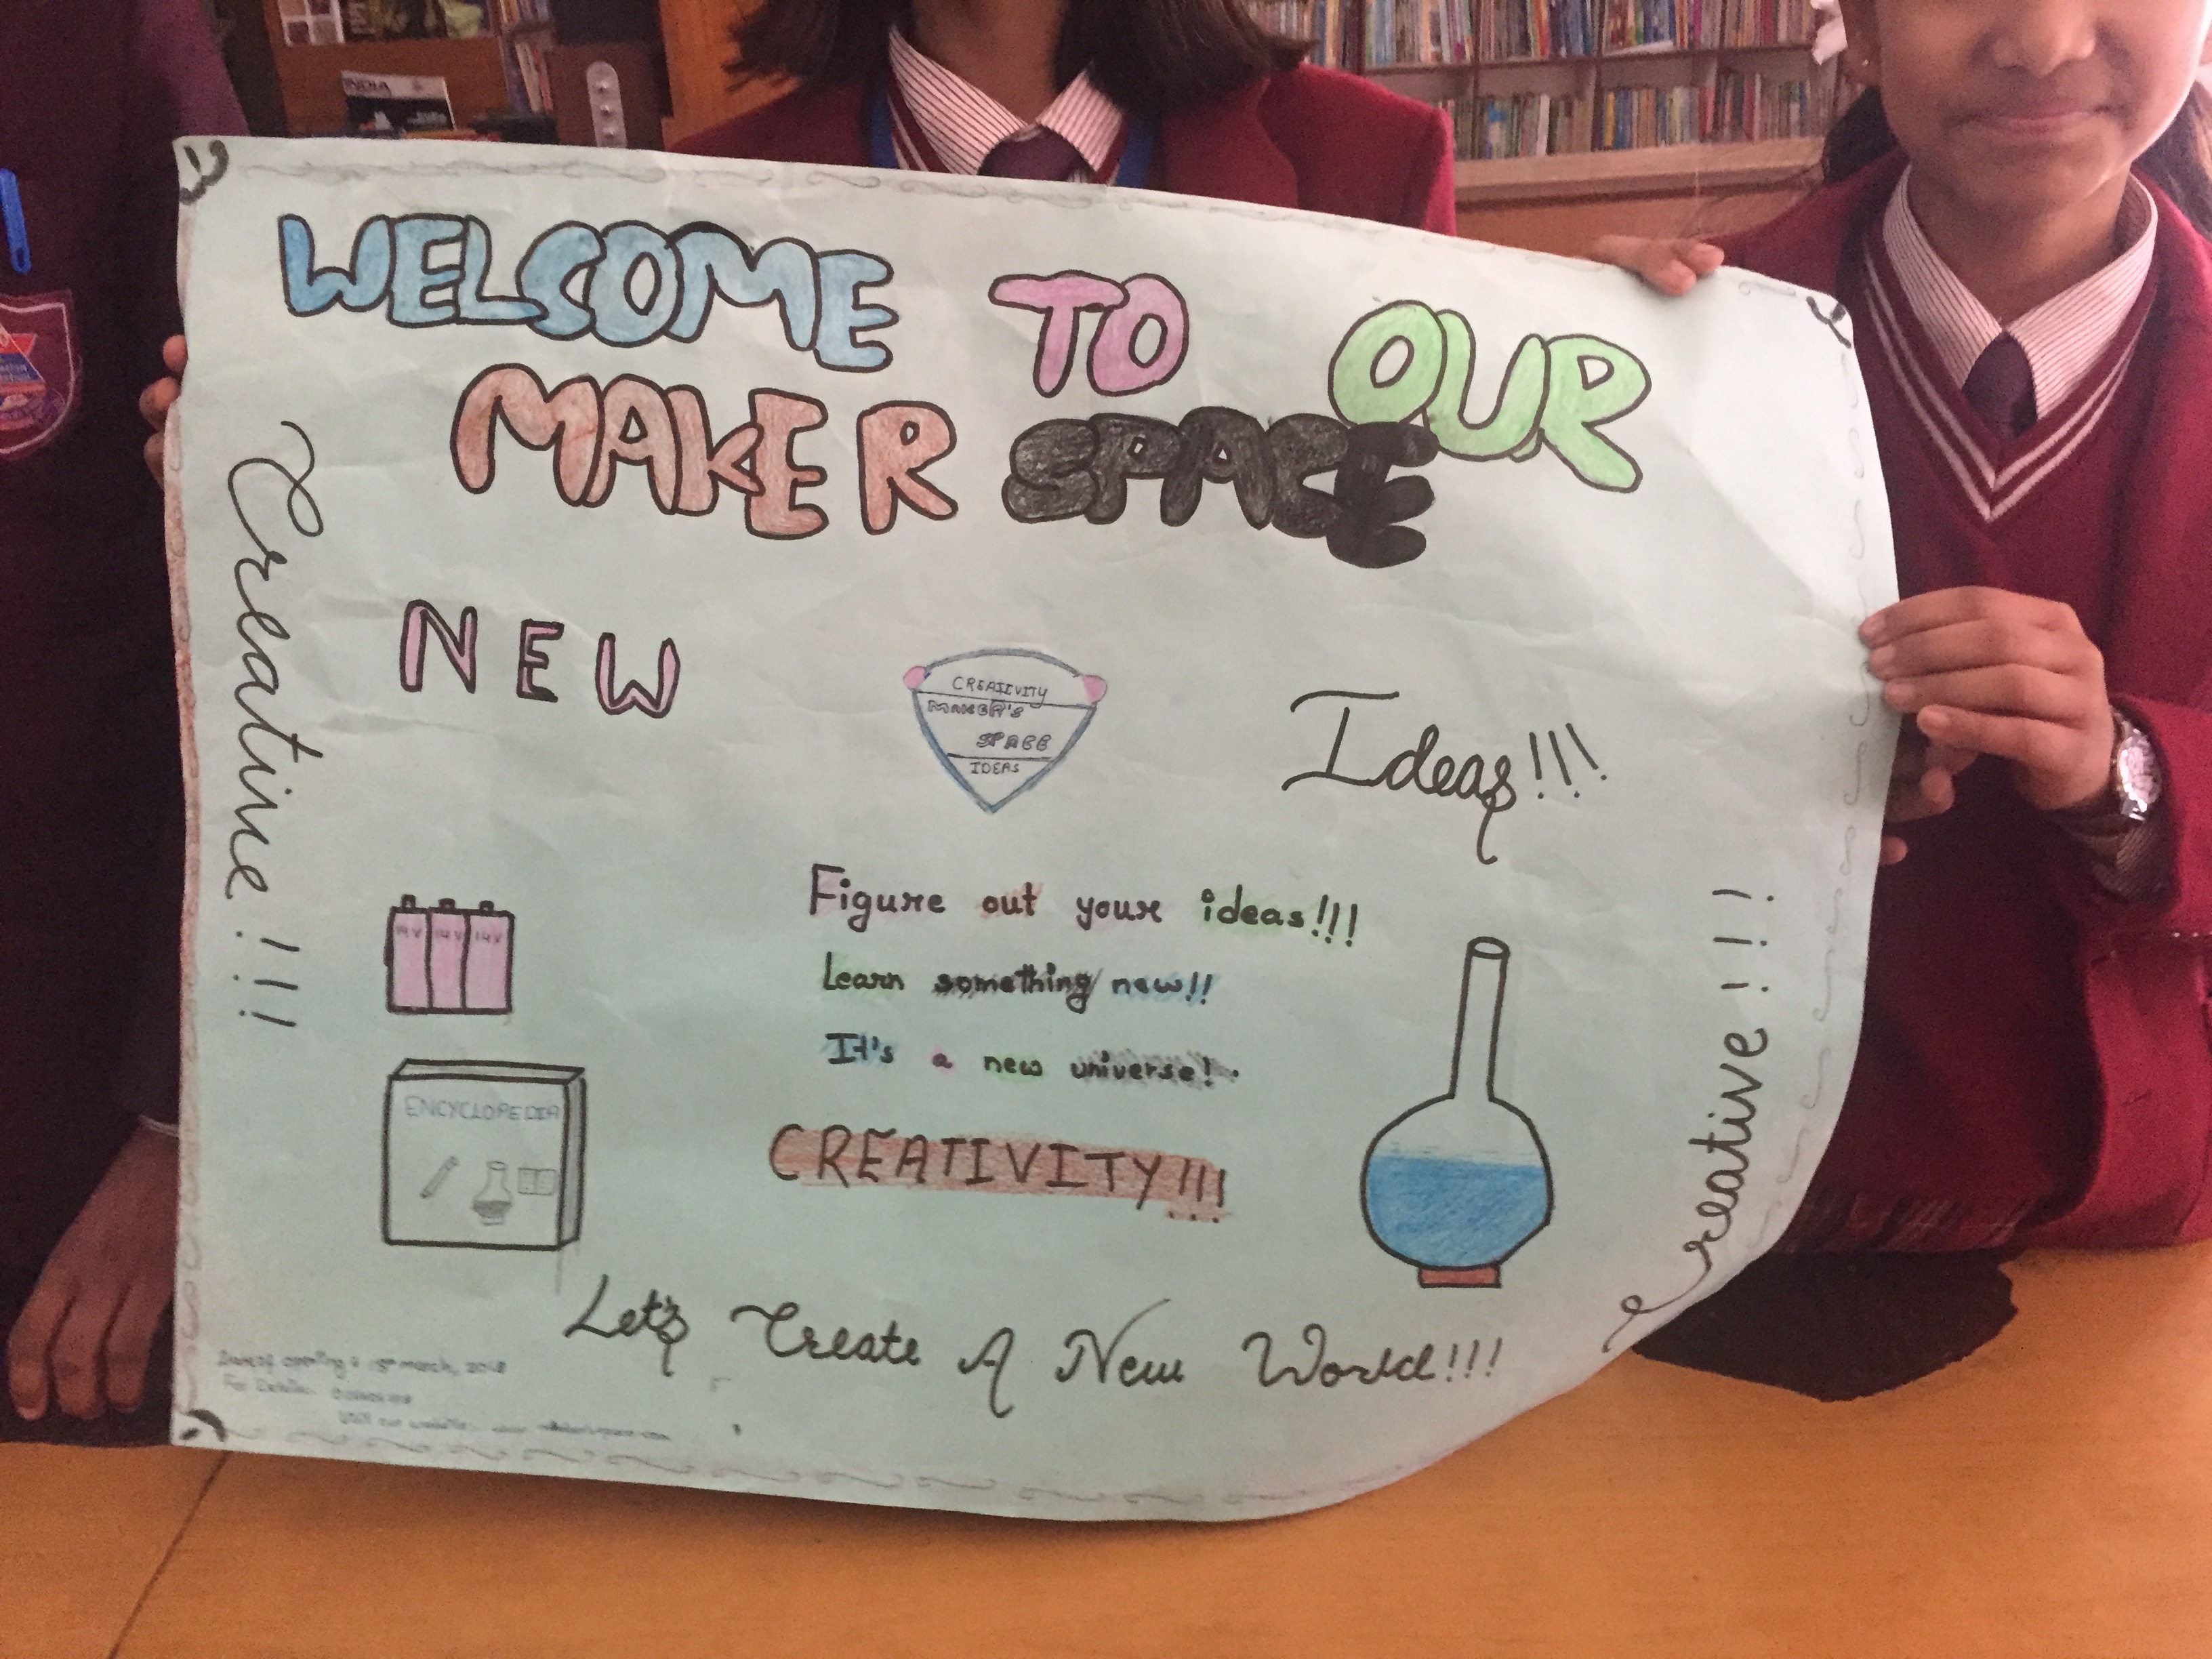 INDIA
WELCOME TO OUR
MAKER SPACE
Creative!!!
NEW
CREATIVITY
MAKER'S
SPACE
IDEAS
Ideas!!!
Figure out your ideas!!!
Learn something new!!
It's a new universe!
CREATIVITY!!!
14V 14V
ENCYCLOPEDIA
Creative!!!
Let's Create A New World!!!
opening march, 2018
For Details:
Visit our website: